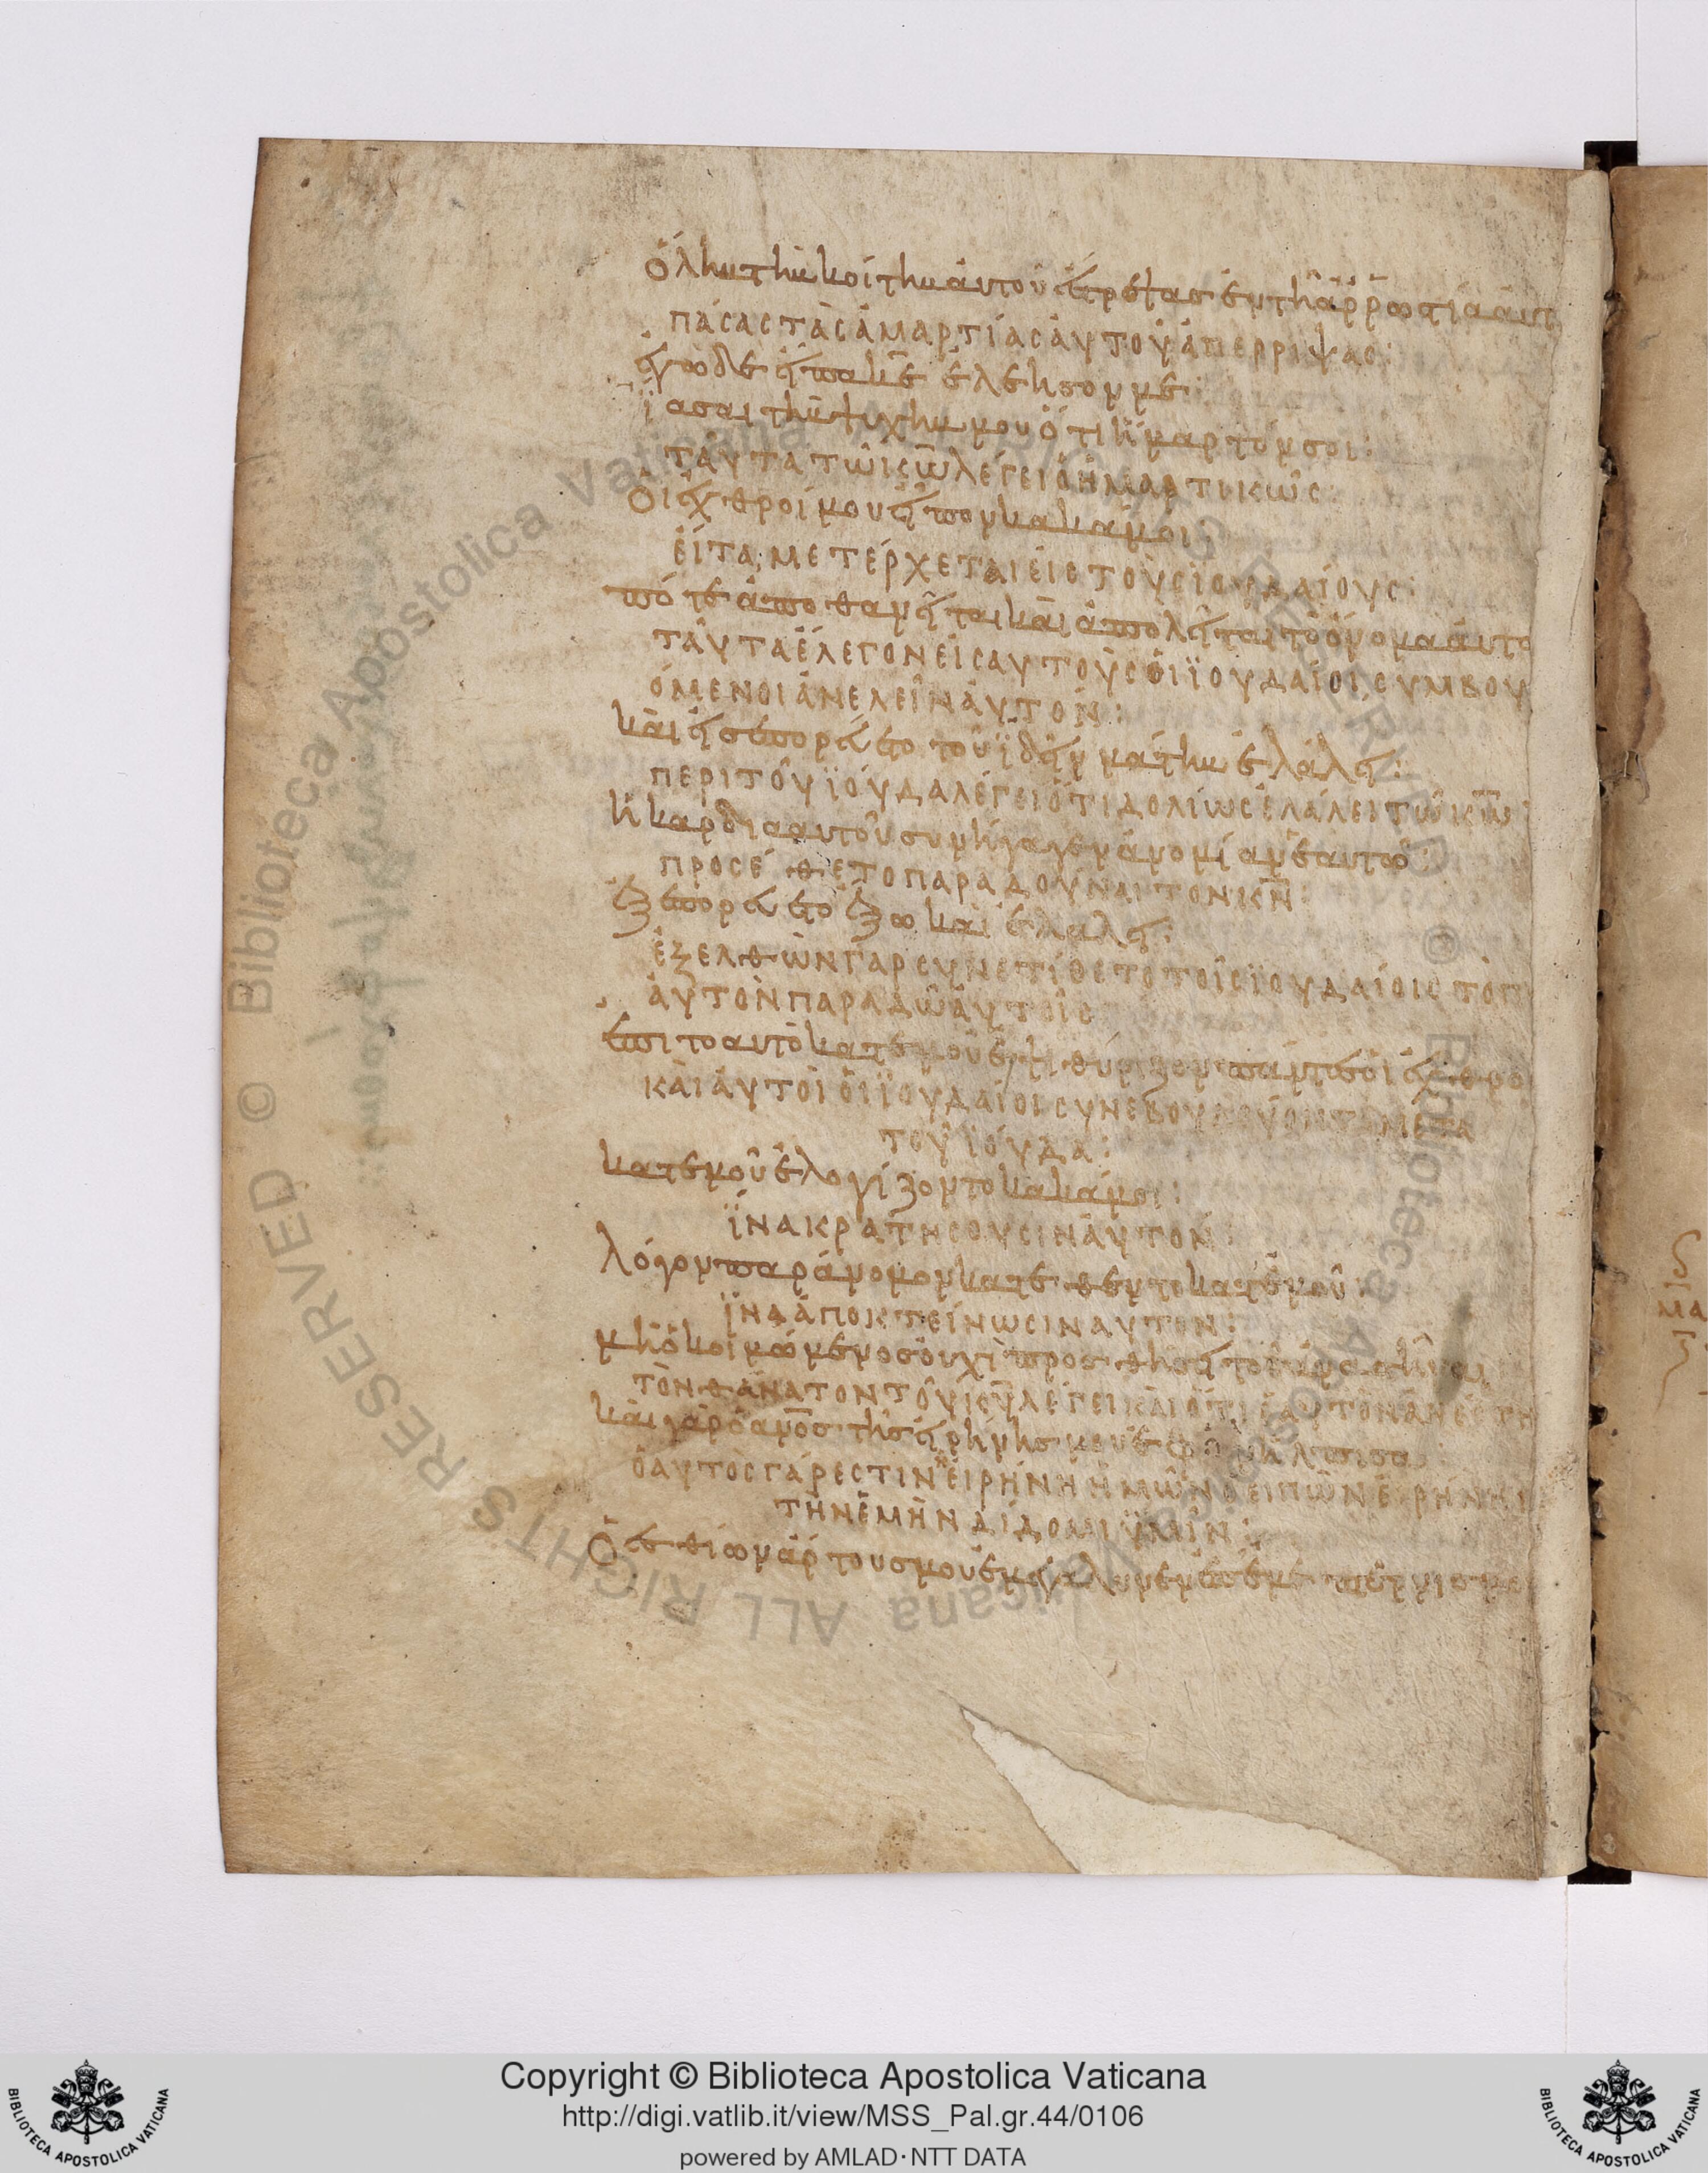 ὅλην τὴν κοίτην αὐτοῦ ἔστρεψας ἐν τῆ ἀρρωστία αὐτ
ΠΆΣΑΣ ΤᾺΣ ἉΜΑΡΤΊΑΣ ἈΥΤΟΥ͂ ἈΠΈΡΡΙΨΑΣ:
ἐγὼ δὲ εἶπα κε̅ ἐλέησον με:
ἴασαι τὴν ψυχήν μου ὅτι ἥμαρτόν σοι:
ΤΑΥ͂ΤΑ ΤΩ͂Ι ΚΩ̅ ΛΈΓΕΙ Ὁ ἩΜΑΡΤΙΚΩΣ
Οἱ ἐχθροί μου εἶπον κακά μοι:
ΕἾΤΑ ΜΕΤΈΡΧΕΤΑΙ ΕἸΣ ΤΟῪΣ ἸΟΥΔΑΊΟΥΣ:
πότε ἀποθανεῖται καὶ ἀπολεῖται τὸ ὄνομα αὐτο
ΤΑΥ͂ΤΑ ἜΛΕΓΟΝ ΕἸΣ ΑΥΤΟῪΣ ὉΙ ἸΟΥΔΑΊΟΙ ΣΥΜΒΟΥ
ΌΜΕΝΟΙ ἈΝΕΛΕΙ͂Ν ἈΥΤΌΝ:
καὶ εἰσεπορεύετο τοῦ ἰδεῖν μάτην ἐλάλει:
ΠΕΡΙ ΤΟΥ͂ ἸΟΎΔΑ ΛΈΓΕΙ ὍΤΙ ΔΟΛΊΩΣ ἘΛΆΛΕΙ ΤΩ͂ ΚΩ̅:
ἡ καρδία αυτοῦ συνήγαγεν ἀνομίαν ἑαυτῶ:
ΠΡΟΣΈΘΕΤΟ ΠΑΡΑΔΟΥ͂ΝΑΙ ΤΟΝ ΚΝ̅:
ἐξεπορεύετο ἔξω καὶ ἐλάλει:
ἘΞΕΛΘῺΝ ΓᾺΡ ΣΥΝΕΤΊΘΕΤΟ ΤΟΙ͂Σ ἸΟΥΔΑΊΟΙΣ ΤῸ Π
ἈΥΤῸΝ ΠΑΡΑΔΩ͂ ἈΥΤΟΙ͂Σ
ἐπὶ τὸ αυτὸ κατ ἐμοῦ ἐψιθύριζον πάντες οἱ ἐχθρο
ΚΑῚ ἈΥΤΟῚ ὉΙ ἸΟΥΔΑΊΟΙ ΣΥΝΕΒΟΥΛΕΎΟΝΤΟ ΜΕΤΑ
ΤΟΥ͂ ἸΟΎΔΑ:
κατ ἐμοῦ ἐλογίζοντο κακά μοι:
ἽΝΑ ΚΡΑΤΉΣΟΥΣΙΝ ἈΥΤΌΝ
λόγον παράνομον κατέθεντο κατ ἐμοῦ:
ἽΝΑ ἈΠΟΚΤΕΊΝΩΣΙΝ ΑΥΤΟΝ:
μὴ ὁ κοιμώμενος οὐχὶ προσθήσει τοῦ ἀναστῆναι
ΤῸΝ ΘΆΝΑΤΟΝ ΤΟΥ͂ ΚΥ̅ ΛΈΓΕΙ ΚΑῚ ὍΤΙ ἙΑΥΤῸΝ ἈΝΈΣΤΗ
καὶ γὰρ ὁ ανο̅ς τῆς εἰρήνης μου ἐφ ὃν ἤλπισα
Ὁ ΑΥΤῸΣ ΓΆΡ ΕΣΤΙΝ Η ΕἸΡΉΝΗ ἩΜΩ͂Ν Ὁ ΕἸΠῺΝ ΕἸΡΉΝΗ
ΤῊΝ ἘΜῊΝ ΔΊΔΟΜΙ ὙΜΙ͂Ν:
Ὁ ἐσθίων ἄρτους μου ἐμεγάλυνεν ἐπ ἐμὲ πτερνισμο
ΜΑ
Copyright © Biblioteca Apostolica Vaticana
http://digi.vatlib.it/view/MSS_Pal.gr.44/0106
powered by AMLAD·NTT DATA
BIBLIOTECA APOSTOLICA VATICANA
BIBLIOTECA APOSTOLICA VATICANA